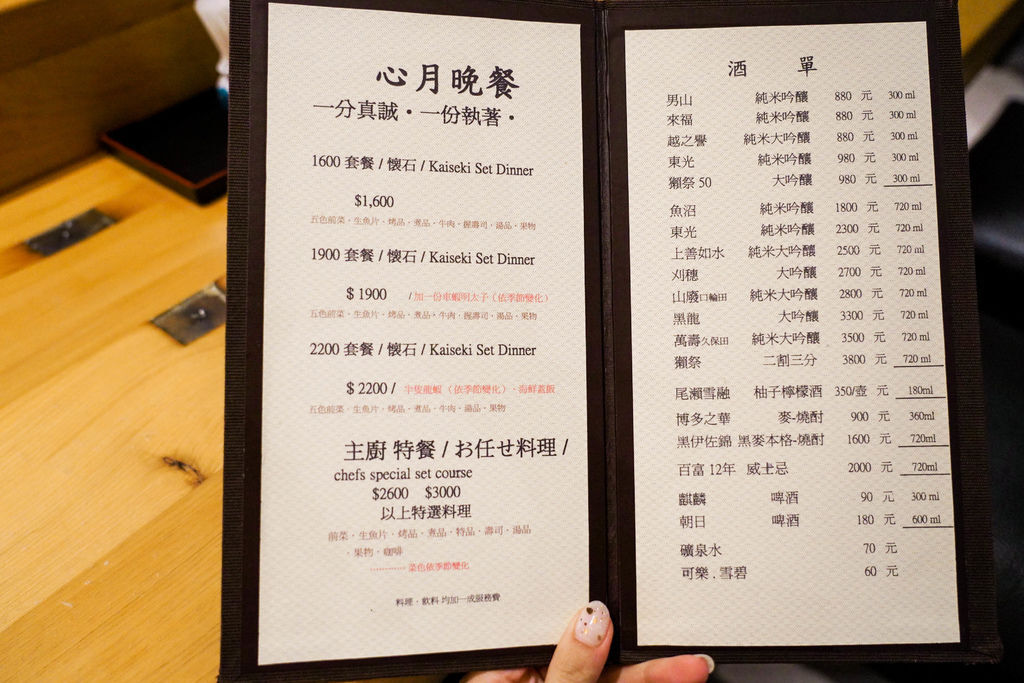 心月晚餐
一分真誠・一份執著・
1600 套餐 / 懷石 / Kaiseki Set Dinner
$1,600
五色前菜・生魚片・烤品・煮品・牛肉・握壽司・湯品・果物
1900 套餐 / 懷石 / Kaiseki Set Dinner
$ 1900 /加一份車蝦明太子（依季節變化）
五色前菜・生魚片・烤品・煮品・牛肉・握壽司・湯品・果物
2200 套餐 / 懷石 / Kaiseki Set Dinner
$ 2200 / 半隻龍蝦 （依季節變化）、海鮮蓋飯
五色前菜・生魚片・烤品・煮品・牛肉・湯品・果物
主廚 特餐 / お任せ料理 /
chefs special set course
$2600 $3000
以上特選料理
前菜・生魚片・烤品・煮品・特品・壽司・湯品
・果物・咖啡
············菜色依季節變化
料理・飲料 均加一成服務費
酒 單
男山 純米吟釀 880 元 300 ml
來福 純米吟釀 880 元 300 ml
越之譽 純米大吟釀 880 元 300 ml
東光 純米吟釀 980 元 300 ml
獺祭 50 大吟釀 980 元 300 ml
魚沼 純米吟釀 1800 元 720 ml
東光 純米吟釀 2300 元 720 ml
上善如水 純米大吟釀 2500 元 720 ml
刈穗 大吟釀 2700 元 720 ml
山廢口輪田 純米大吟釀 2800 元 720 ml
黑龍 大吟釀 3300 元 720 ml
萬壽久保田 純米大吟釀 3500 元 720 ml
獺祭 二割三分 3800 元 720 ml
尾瀨雪融 柚子檸檬酒 350/壺 180ml
博多之華 麥-燒酎 900 元 360ml
黑伊佐錦 黑麥本格-燒酎 1600 元 720ml
百富 12年 威士忌 2000 元 720ml
麒麟 啤酒 90 元 300 ml
朝日 啤酒 180 元 600 ml
礦泉水 70 元
可樂 . 雪碧 60 元